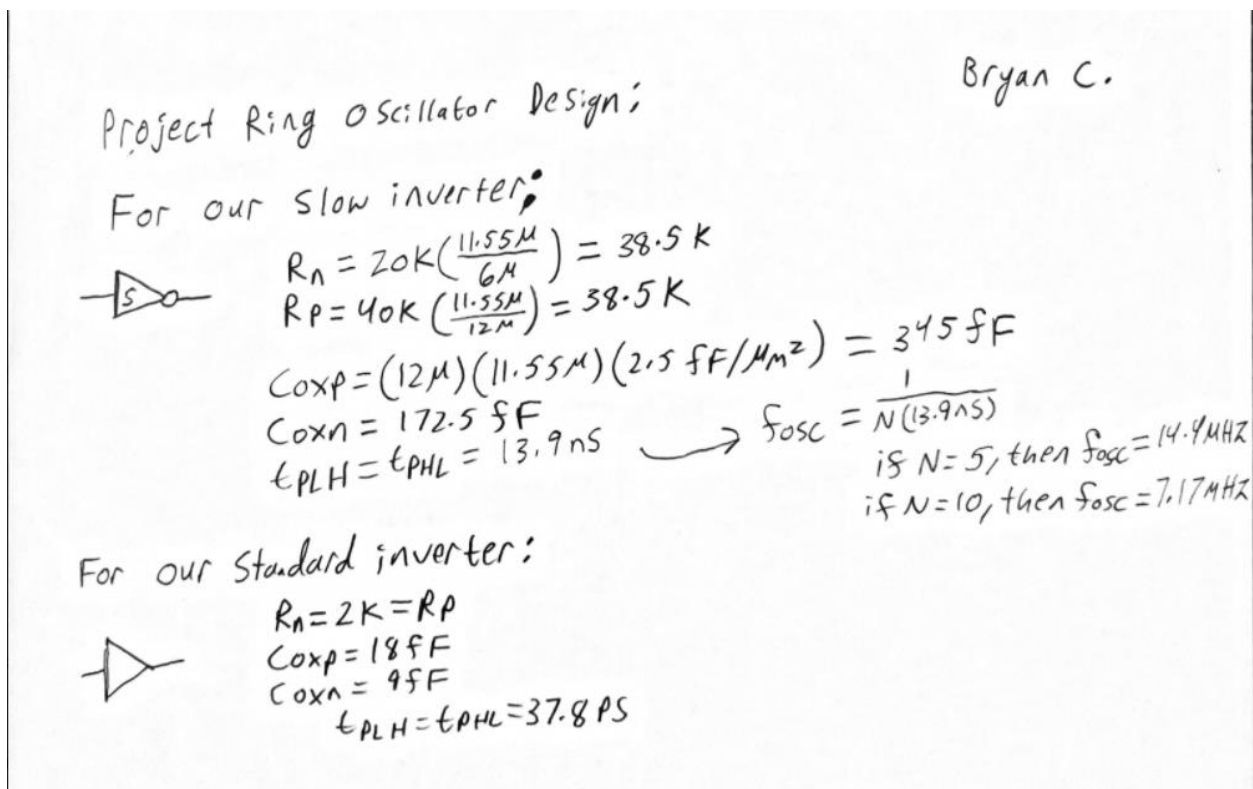 Bryan C.
Project Ring Oscillator Design:
For our slow inverter:
S
Rn = 20K(11.55µ/6µ) = 38.5 K
Rp = 40K (11.55µ/12µ) = 38.5K
Coxp = (12µ)(11.55µ)(2.5 fF/µm²) = 345 fF
Coxn = 172.5 fF
tPLH = tPHL = 13.9 ns → fosc = 1/N(13.9ns)
if N=5, then fosc = 14.4MHZ
if N=10, then fosc = 7.17MHZ
For our Standard inverter:
Rn = 2K = Rp
Coxp = 18fF
Coxn = 9fF
tPLH = tPHL = 37.8 PS